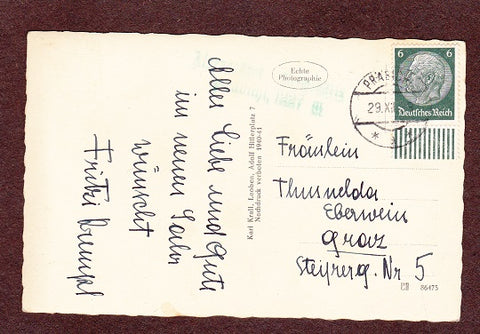 Alles Liebe und Gute
im neuen Jahr
wünscht
Fritzi
Echte
Photographie
Karl Krall, Leoben, Adolf Hitlerplatz 7
Nachdruck verboten 1940-41
6 6
Deutsches Reich
29.XII
Fräulein
Thusnelda
Eberwein
Graz
Steyrerg. Nr. 5
86475